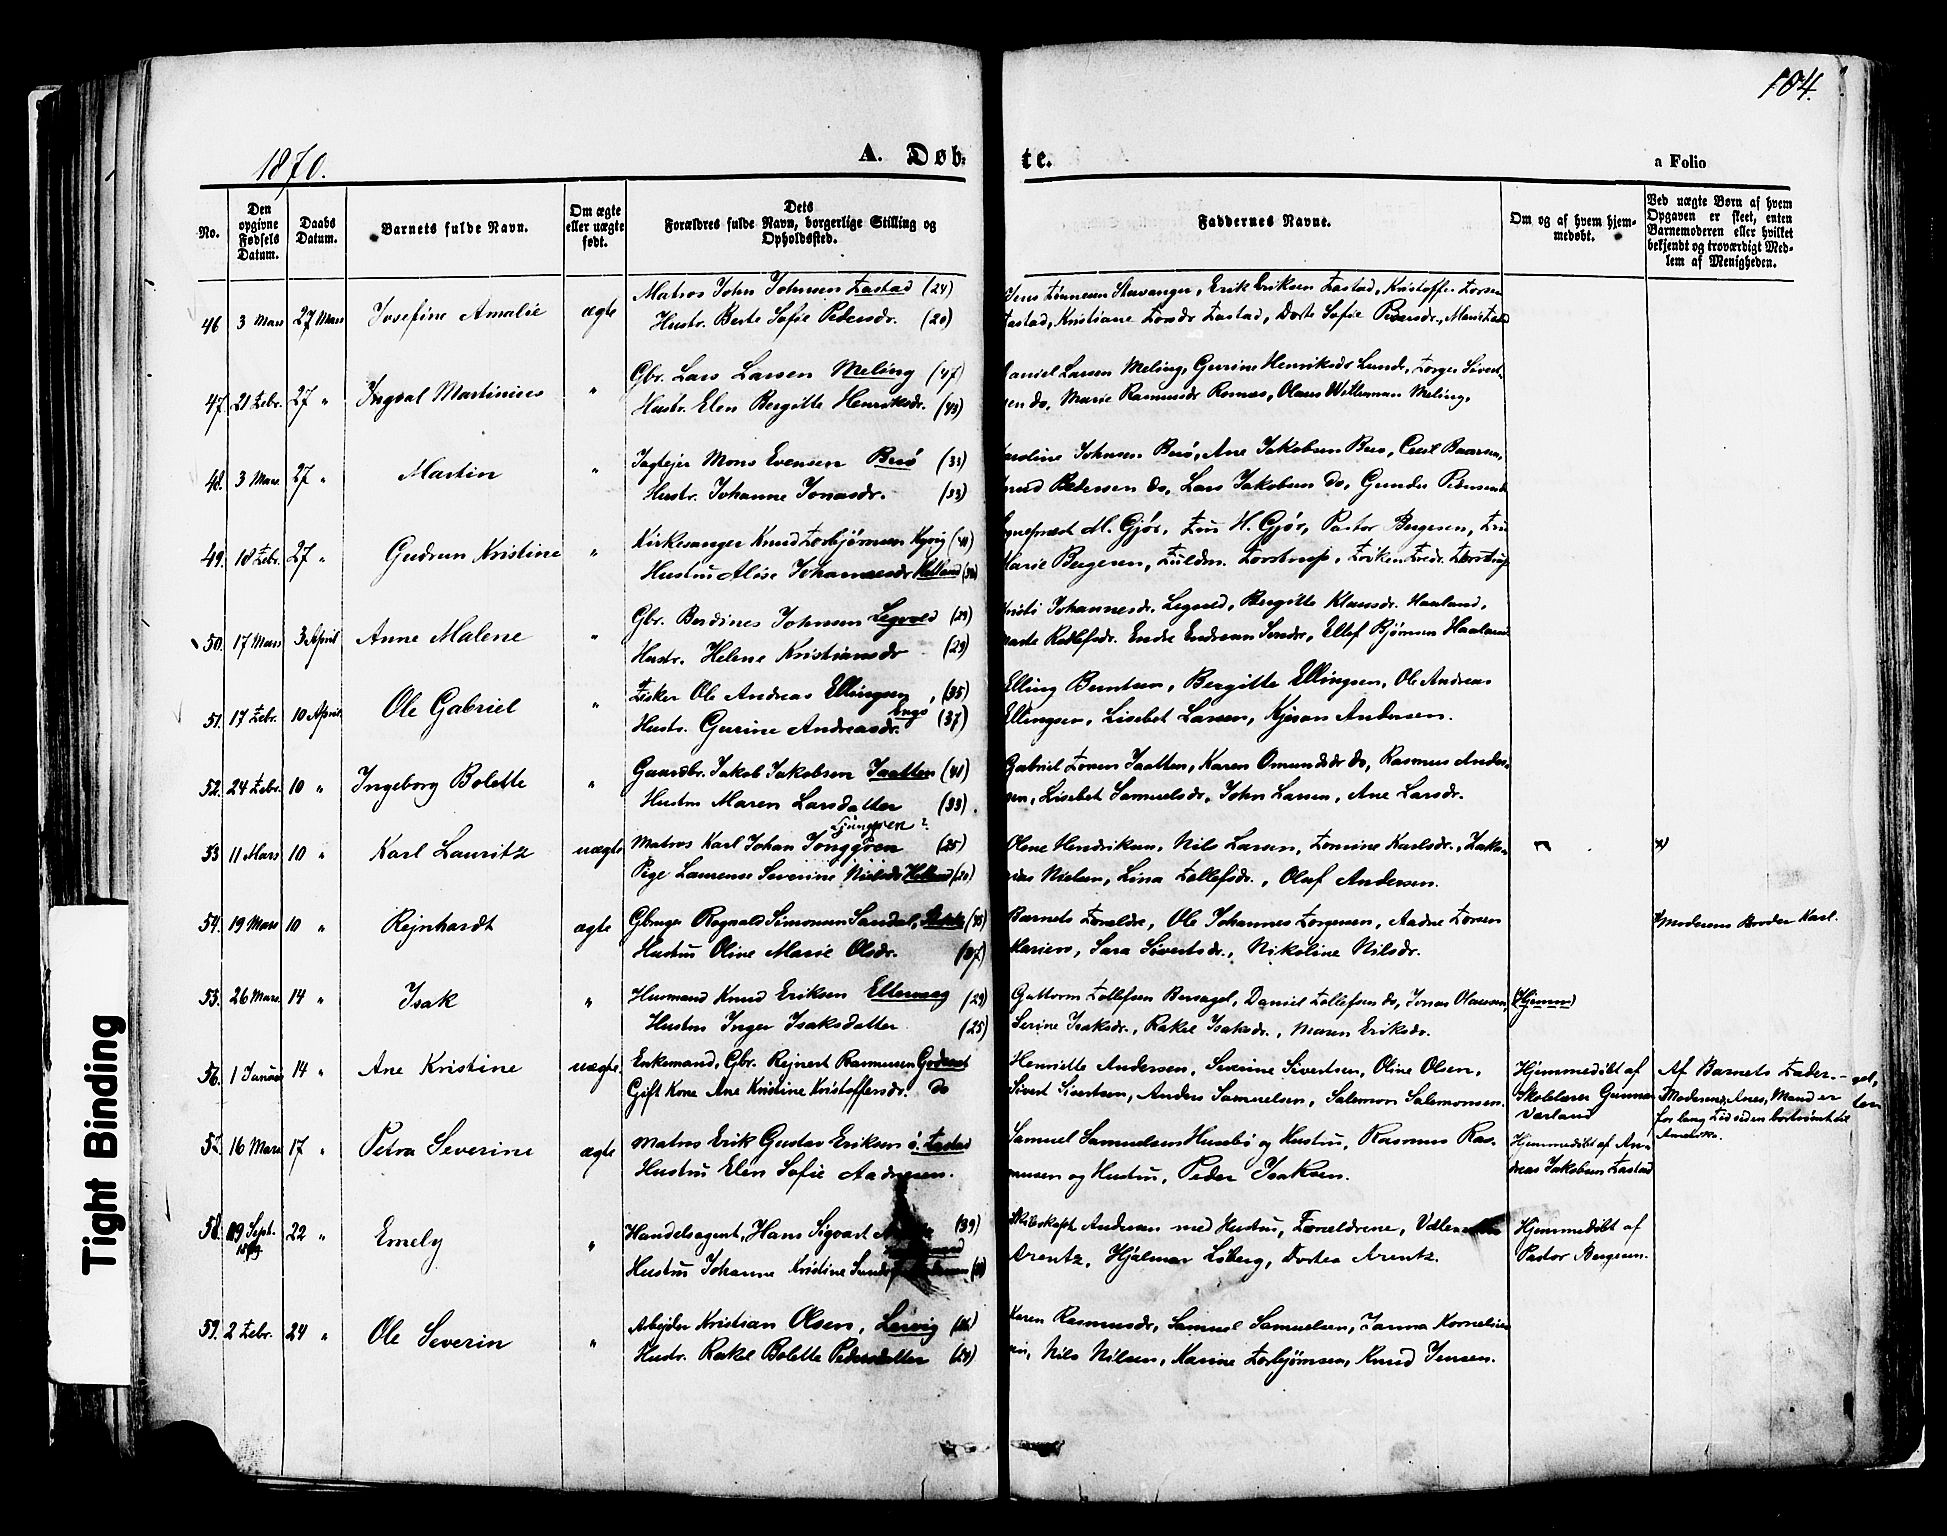 104.
1870.
A. Døb-
te.
a Folio
No.
Den opgivne Fødsels Datum.
Daabs Datum.
Barnets fulde Navn.
Om ægte eller uægte født.
Dets Forældres fulde Navn, borgerlige Stilling og Opholdssted.
Faddernes Navne.
Om og af hvem hjemmedøbt.
Ved uægte Børn af hvem Opgaven er skeet, enten Barnemoderen eller hvilket bekjendt og troværdigt Medlem af Menigheden.
46 3 Mars 27 Mars Josefine Amalie ægte Matros John Johnsen Tastad (24)
Hustr. Berte Sofie Pedersdr. (20)
Stavanger, Erik Eriksen Tastad, Kristoffer
Tastad, Kristiane Tastad, Dorte Sofie Pedersdr.,
47. 21 Febr. 27 " Ingval Martinius " Gbr. Lars Larsen Meling (47)
Hustr. Elen Bergitte Henriksdr. (43)
Daniel Larsen Meling, Gurine Henriksdr Lunde, Torger Sivert-
sen do, Marie Rasmusdr Rosnæs, Olaus Willuman Meling.
48. 3 Mars 27 " Martin " Jagtejer Mons Evensen Buø (33)
Hustr. Johanne Jonasdr. (33)
Karoline Johnsen Buø, Ane Jakobsen Buø,
Knud Pedersen do, Lars Jakobsen do, Gunder Pedersen do
49. 18 Febr. 27 " Gudrun Kristine " Kirkesanger Knud Torbjørnsen Kyvig (40)
Hustru Alise Johannesdr Hetland
Sognepræst M. Gjør, Fru H. Gjør, Pastor Bergesen, Fru
Marie Bergesen, Fuldm. Torstrup, Frøken Fredr. Torstrup
50. 17 Mars 3 April Anne Malene " Gbr. Berdines Johnsen Legvold (29)
Hustr. Helene Kristiansdr (29)
Johannesdr. Legvold, Bergitte Klausdr. Haaland,
Endre Endresen Ellef Bjørnsen Haaland
51. 17 Febr. 10 April Ole Gabriel " Fisker Ole Andreas Ellingsen, Engø (35)
Hustr. Gurine Andreasdr. (37)
Elling Berntsen, Bergitte Ellingsen, Ole Andreas
Ellingsen, Lisebet Larsen, Kjesan Andersen.
52. 24 Febr. 10 " Ingeborg Bolette " Gaardbr. Jakob Jakobsen Jaatten (41)
Hustru Maren Larsdatter (33).
Gabriel Torsen Jaatten, Karen Omundsdr do, Rasmus Ander-
sen, Lisebet Samuelsdr., John Larsen, Ane Larsdr.
Ljunggren?
53 11 Mars 10 " Karl Lauritz uægte Matros Karl Johan Jonggren (25)
Pige Laurense Severine Nielsdr Hetland (20)
Olene Hendriksen, Nils Larsen, Tomine Karlsdr., Zaka-
rias Nielsen, Lina Tollefsdr., Olaf Andersen.
54. 19 Mars 10 " Rejnhardt ægte Gbruger Rognald Simonsen Sandal,
Hustru Oline Marie Olsdr. (37)
Barnets Forældre, Ole Johannes Torgersen, Aadne Torsen
Mariero, Sara Sivertsdr., Nikoline Nilsdr.
Moderens Broder Karl.
55. 26 Mars 14 " Isak " Husmand Knud Eriksen Ellevaag (29)
Hustru Inger Isaksdatter (25)
Guttorm Tollefsen Bersagel, Daniel Tollefsen do, Jonas Olaussen,
Serine Isaksdr., Rakel Isaksdr., Maren Eriksdr.
(Hjemme)
56. 1 Januar 14 " Ane Kristine uægte Enkemand, Gbr. Rejnert Rasmussen Godeset
Gift Kone Ane Kristine Kristoffersdr. do
Henriette Andersen, Severine Sivertsen, Oline Olsen,
Sivert Sivertsen, Anders Samuelsen, Salomon Salomonsen.
Hjemmedøbt af
Skolelærer Gunnar
Værland
Af Barnets Fader. -
Moderens, Anes, Mand er
for lang Tid siden bortrømt til
Amerika.
57. 16 Mars 17 " Petra Severine ægte Matros Erik Gustav Eriksen ø. Tastad
Hustru Elen Sofie Aadnesen.
Samuel Samuelsen Husebø og Hustru, Rasmus Ras-
musen og Hustru, Peder Isaksen.
Hjemmedøbt af An-
dreas Jakobsen Tastad
58. 19 Sept. 1869 22 " Emely " Handelsagent, Hans Sigvart (39)
Hustru Johanne Kristine
Skibskapt Andersen med Hustru, Forældrene,
Arentz, Hjalmar Løberg, Dortea Arentz.
Hjemmedøbt af
Pastor Bergesen.
59. 2 Febr. 24 " Ole Severin " Arbejder Kristian Olsen, Lervig
Hustr. Rakel Bolette Pedersdatter (24)
Karen Rasmusdr, Samuel Samuelsen, Janna Kornelius-
sen, Nils Nilsen, Karine Torbjørnsen, Knud Jensen.
Tight Binding